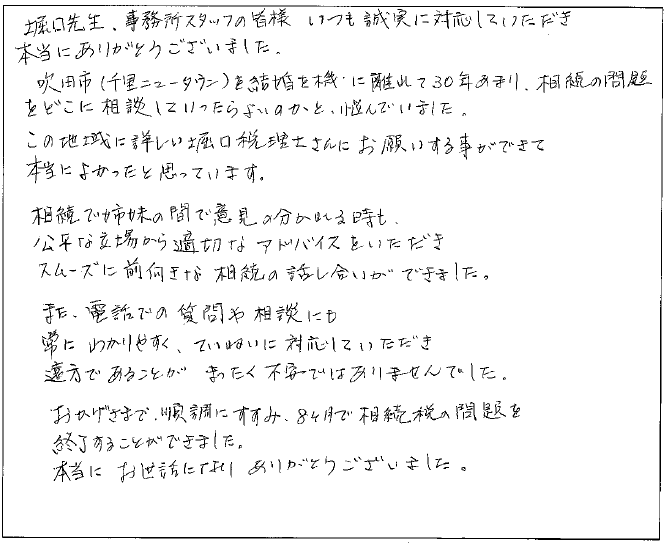 堀口先生、事務所スタッフの皆様 いつも誠実に対応していただき
本当にありがとうございました。
吹田市(千里ニュータウン)を結婚を機に離れて30年あまり、相続の問題
をどこに相談していったらよいのかと、悩んでいました。
この地域に詳しい堀口税理士さんにお願いする事ができて
本当によかったと思っています。
相続で姉妹の間で意見の分かれる時も、
公平な立場から適切なアドバイスをいただき
スムーズに前向きな相続の話し合いができました。
また、電話での質問や相談にも
常にわかりやすく、ていねいに対応していただき
遠方であることがまったく不安ではありませんでした。
おかげさまで、順調にすすみ、8ヶ月で相続税の問題を
終了することができました。
本当にお世話になりありがとうございました。